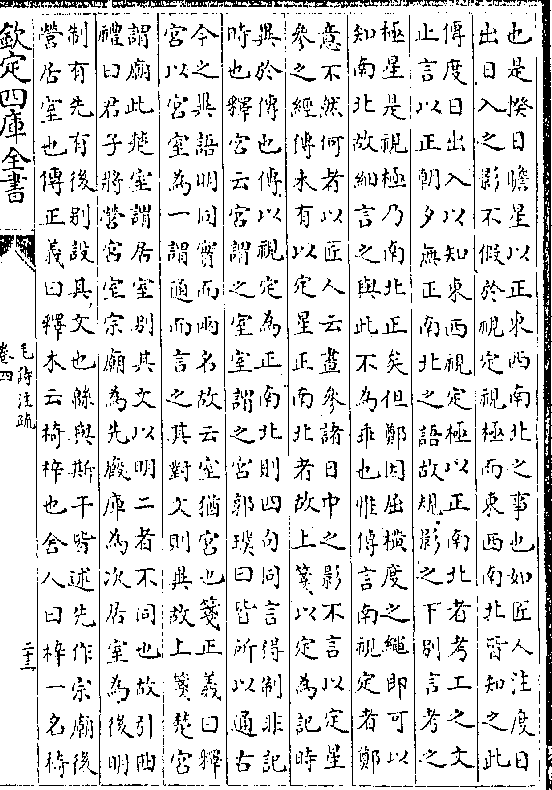 也是揆日瞻星以正東西南北之事也如匠人注度日
出日入之影不假於視定視極而東西南北皆知之此
傳度日出入以知東西視定極以正南北者考工之文
止言以正朝夕無正南北之語故規影之下别言考之
極星是視極乃南北正矣但鄭因屈橫度之繩即可以
知南北故細言之與此不為乖也惟傳言南視定者鄭
意不然何者以匠人云晝參諸日中之影不言以定星
參之經傳未有以定星正南北者故上箋以定為記時
異於傳也傳以視定為正南北則四句同言得制非記
時也釋宫云宫謂之室室謂之宫郭璞曰皆所以通古
今之異語明同實而兩名故云室猶宫也箋正義曰釋
宫以宫室為一謂通而言之其對文則異故上箋楚宫
謂廟此楚室謂居室别其文以明二者不同也故引曲
禮曰君子將營宫室宗廟為先廐庫為次居室為後明
制有先有後别設其文也緜與斯干皆述先作宗廟後
營居室也傳正義曰釋木云椅梓也舍人曰梓一名椅
欽定四庫全書
毛詩注疏
卷四
二十三